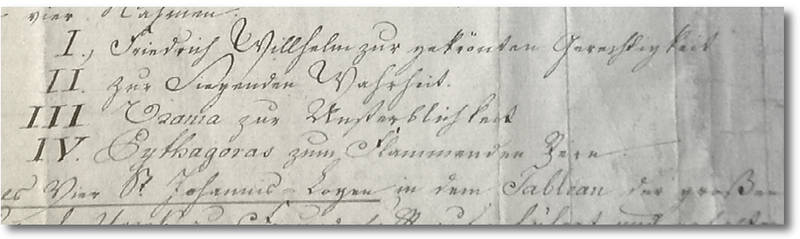 vier Nahmen.
I., Friedrich Willhelm zur gekrönten Gerechtigkeit
II. zur Siegenden Wahrheit.
III Urania zur Unsterblichkeit
IV. Pythagoras zum Flammenden Stern
es Vier St. Johannis-Logen in dem Tableau der großen
und